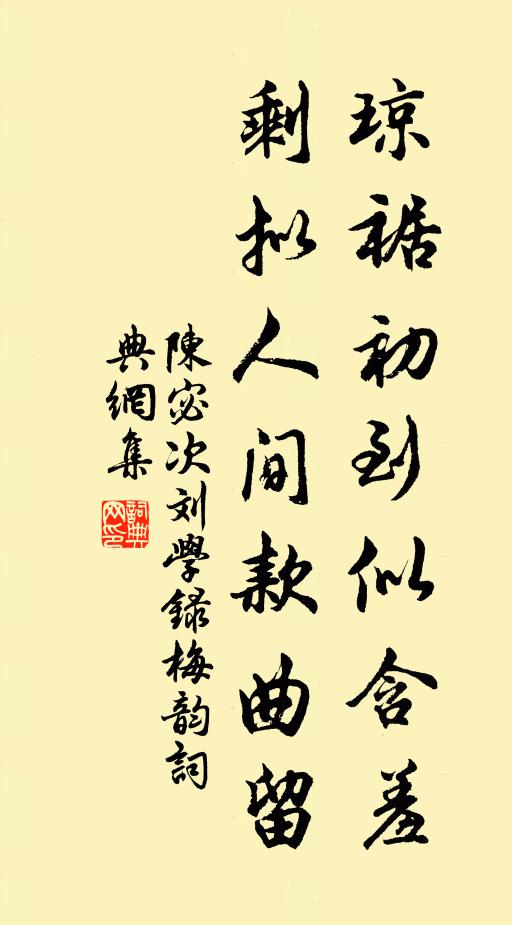 琼裾初到似含羞
剩拟人间款曲留
陳宓次刘學録梅韵詞
典網集
詞典
网印